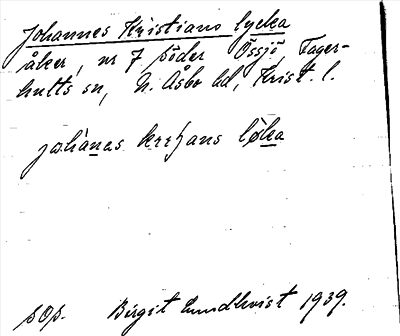 Johannes Kristians lycka
åker, nr 7 Söder Össjö, Tåger-
hults sn, N. Åsbo hd, Krist. l.
johànas krɪʃans løka
sop. Birgit Lundkvist 1939.